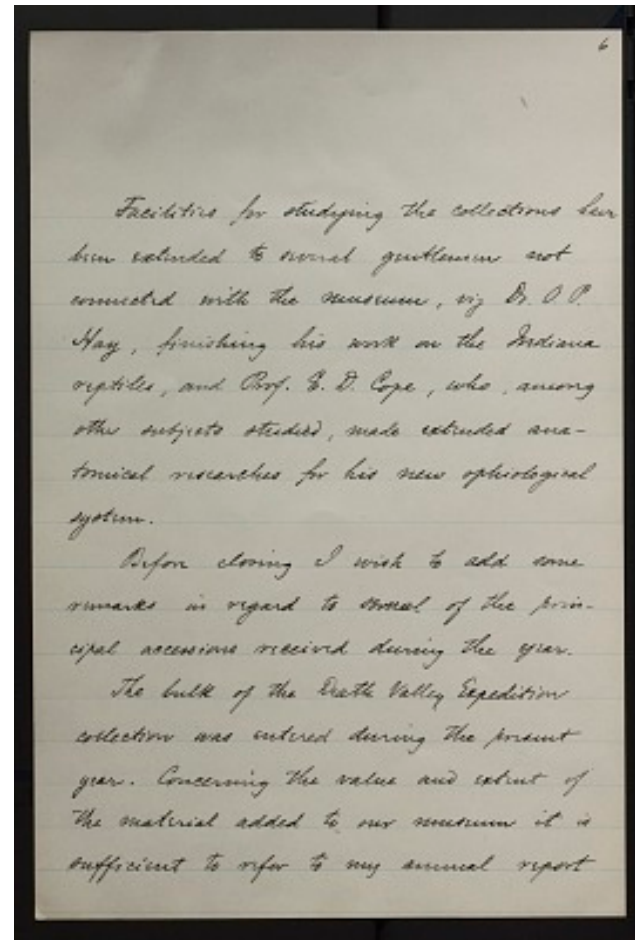 6
Facilities for studying the collections have
been extended to several gentlemen not
connected with the museum, viz Dr. O. P.
Hay, finishing his work on the Indiana
reptiles, and Prof. E. D. Cope, who, among
other subjects studied, made extended ana-
tomical researches for his new ophiological
system.
Before closing I wish to add some
remarks in regard to several of the prin-
cipal accessions received during the year.
The bulk of the Death Valley Expedition
collection was entered during the present
year. Concerning the value and extent of
the material added to our museum it is
sufficient to refer to my annual report